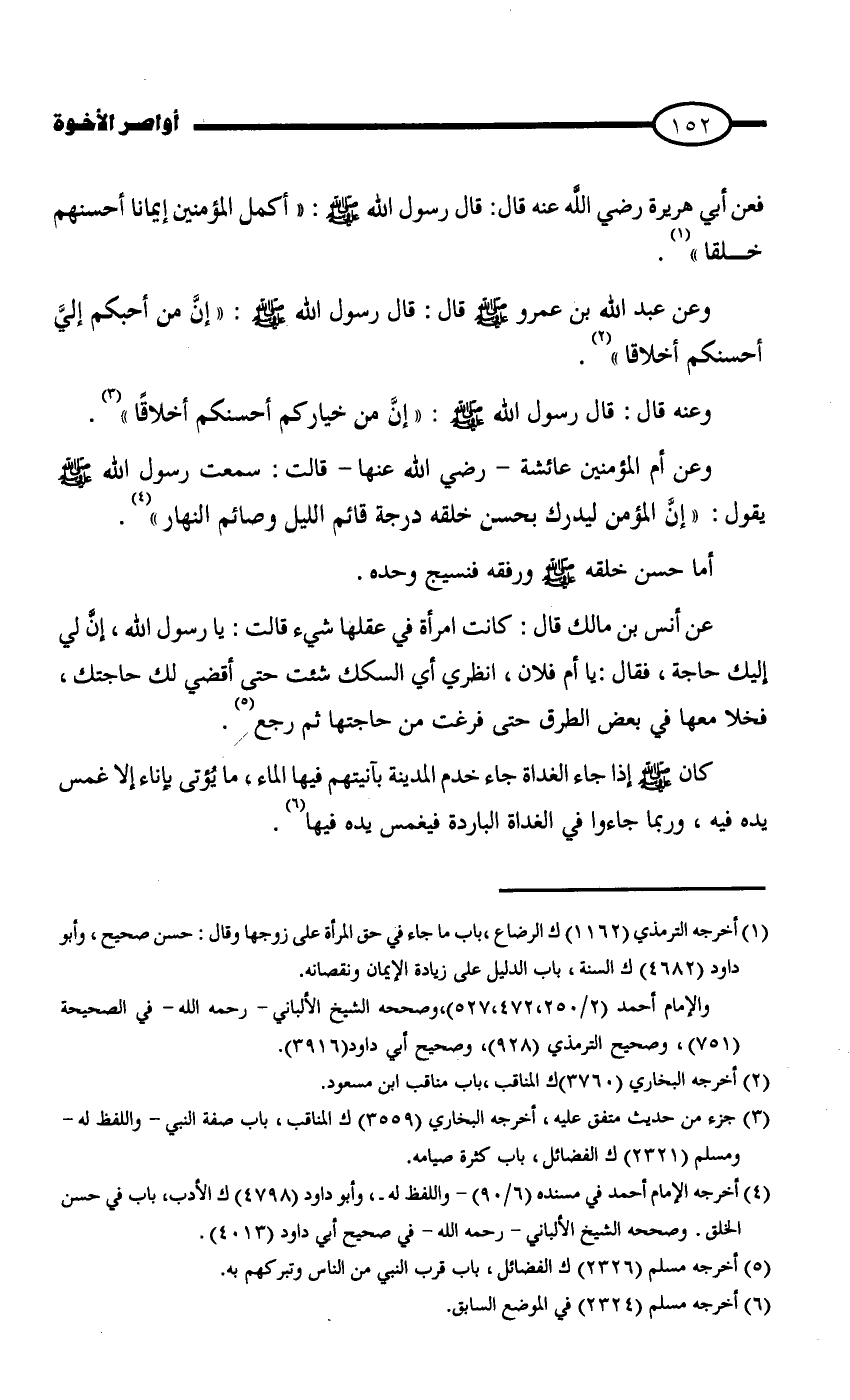 ١٥٢ أواصر الأخوة
فعن أبي هريرة رضي اللَّه عنه قال: قال رسول الله ﷺ : « أكمل المؤمنين إيمانا أحسنهم
خـــلقا »(١) .
وعن عبد الله بن عمرو ﷺ قال : قال رسول الله ﷺ : « إنَّ من أحبكم إليَّ
أحسنكم أخلاقا »(٢) .
وعنه قال : قال رسول الله ﷺ : « إنَّ من خياركم أحسنكم أخلاقًا »(٣) .
وعن أم المؤمنين عائشة – رضي الله عنها– قالت : سمعت رسول الله ﷺ
يقول : « إنَّ المؤمن ليدرك بحسن خلقه درجة قائم الليل وصائم النهار »(٤) .
أما حسن خلقه ﷺ ورفقه فنسيج وحده .
عن أنس بن مالك قال : كانت امرأة في عقلها شيء قالت : يا رسول الله ، إنَّ لي
إليك حاجة ، فقال :يا أم فلان ، انظري أي السكك شئت حتى أقضي لك حاجتك ،
فخلا معها في بعض الطرق حتى فرغت من حاجتها ثم رجع(٥) .
كان ﷺ إذا جاء الغداة جاء خدم المدينة بآنيتهم فيها الماء ، ما يُؤتى بإناء إلا غمس
يده فيه ، وربما جاءوا في الغداة الباردة فيغمس يده فيها(٦) .
(١) أخرجه الترمذي (١١٦٢) ك الرضاع ،باب ما جاء في حق المرأة على زوجها وقال : حسن صحيح ، وأبو
داود (٤٦٨٢) ك السنة ، باب الدليل على زيادة الإيمان ونقصانه.
والإمام أحمد (٢/‏٢٥٠،‏٤٧٢،‏٥٢٧)،وصححه الشيخ الألباني– رحمه الله– في الصحيحة
(٧٥١) ، وصحيح الترمذي (٩٢٨)، وصحيح أبي داود(٣٩١٦).
(٢) أخرجه البخاري (٣٧٦٠)ك المناقب ،باب مناقب ابن مسعود.
(٣) جزء من حديث متفق عليه ، أخرجه البخاري (٣٥٥٩) ك المناقب ، باب صفة النبي – واللفظ له –
ومسلم (٢٣٢١) ك الفضائل ، باب كثرة صيامه.
(٤) أخرجه الإمام أحمد في مسنده (٦/‏٩٠) – واللفظ له ـ، وأبو داود (٤٧٩٨) ك الأدب، باب في حسن
الخلق . وصححه الشيخ الألباني – رحمه الله – في صحيح أبي داود (٤٠١٣) .
(٥) أخرجه مسلم (٢٣٢٦) ك الفضائل ، باب قرب النبي من الناس وتبركهم به.
(٦) أخرجه مسلم (٢٣٢٤) في الموضع السابق.